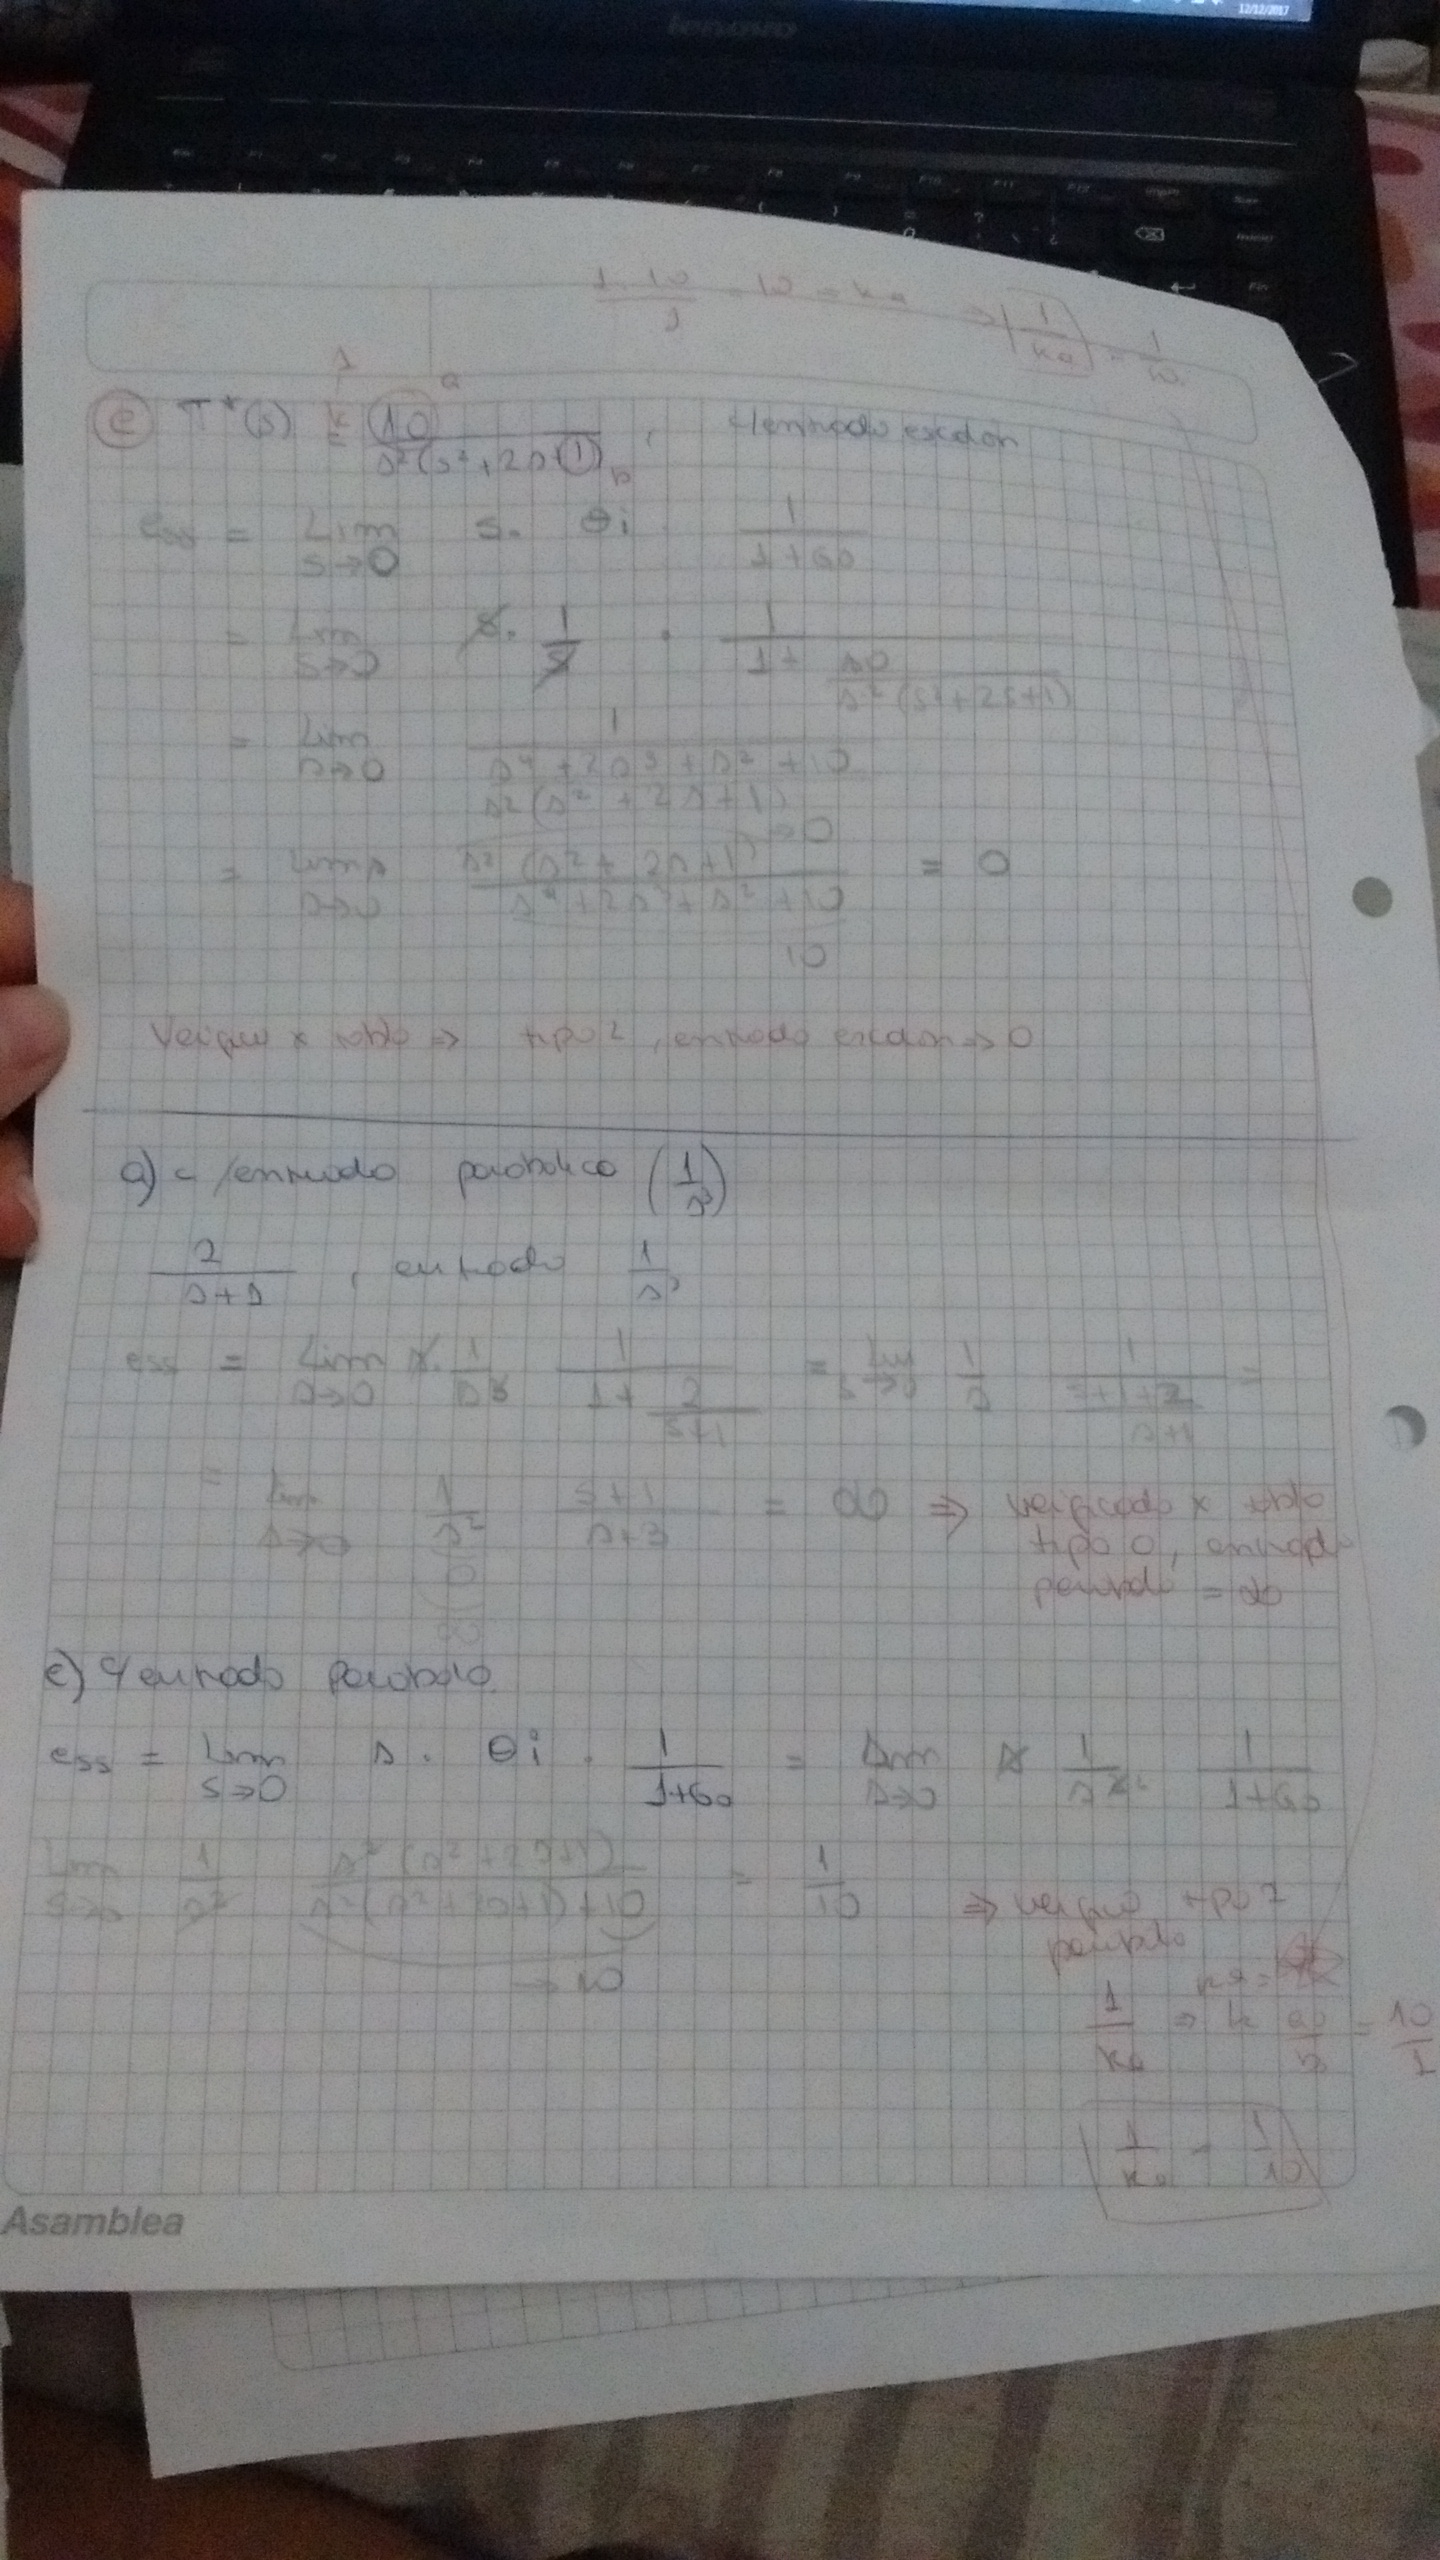 12/12/2017
lenovo
1 . 10 / 1 = 10 = ka ⇒ 1/ka = 1/10
1
a
e π*(s) k = 10 / s²(s²+2s+1) b , c/entrada escalón
ess = Lim s→0 s. θi 1/(1+Go)
= Lim s→0 s. 1/s . 1/(1+ 10/(s²(s²+2s+1)))
= Lim s→0 1/((s⁴+2s³+s²+10)/(s²(s²+2s+1)))
= Lim s→0 s²(s²+2s+1)→0 / (s⁴+2s³+s²+10) = 0
10
tipo 2, entrada escalon → 0
a) c/entrada parabolica (1/s³)
2/(s+1) , entrada 1/s³
ess = Lim s→0 s. 1/s³ 1/(1+ 2/(s+1)) = Lim s→0 1/s 1/((s+1+2)/(s+1)) =
= Lim s→0 1/s² (s+1)/(s+3) = ∞ ⇒ verificado x tabla
tipo 0, entrada
= ∞
e) c/entrada parabola
ess = Lim s→0 s. θi . 1/(1+Go) = Lim s→0 s 1/s³ . 1/(1+Go)
Lim s→0 1/s² s²(s²+2s+1)/(s²(s²+2s+1)+10) = 1/10 ⇒ tipo 2
→ 10
1/ka ⇒ k a/b = 10/1
1/ka = 1/10
Asamblea